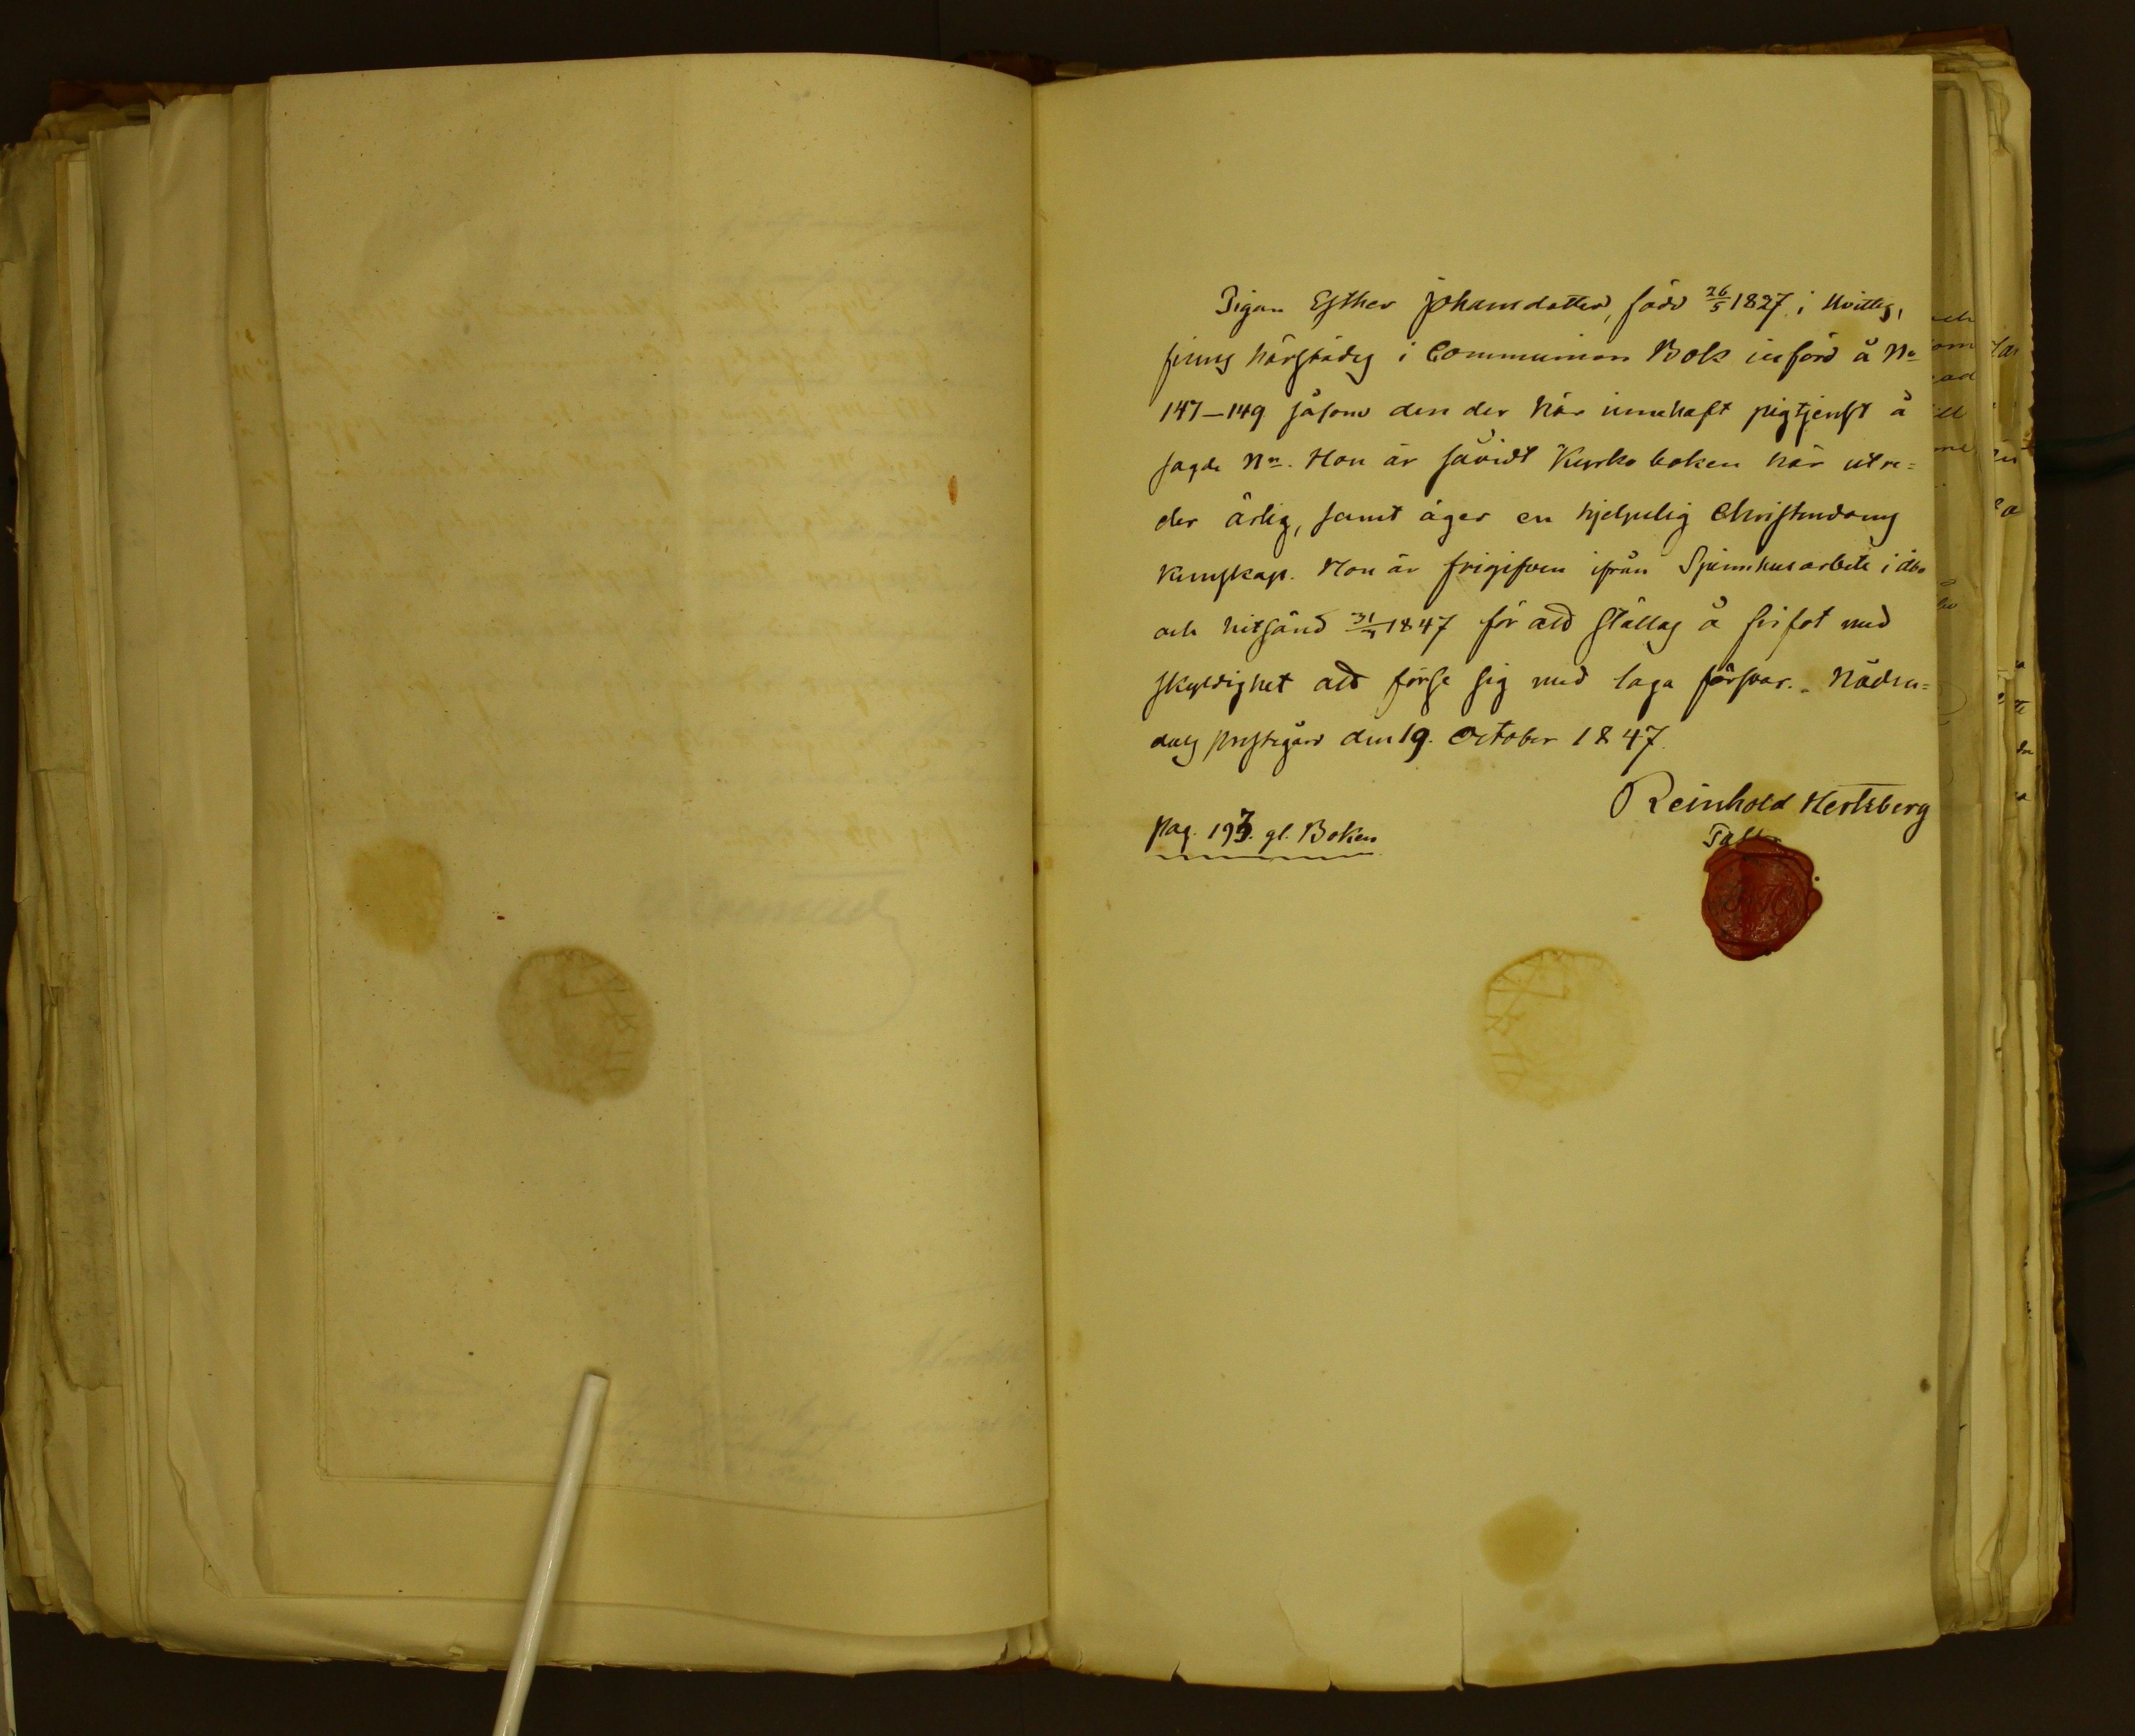 Pigan Esther Johansdotter, född 26/5 1827 i Hvittis,
finns härstädes i Communion Bok införd å No
147-149 såsom den der här innehaft pigtjenst å
sagde No. Hon är såvidt Kyrko boken här utre=
der ärlig, samt äger en hjelplig Christendoms
kunskap. Hon är frigifven ifrån Spinnhusarbete i åbo
och hitsänd 1847 för att ställas å fri fot med
skyldighet att förse sig med laga försvar. Nåden=
dals prestgård den 19. October 1847.
Reinhold Hertzberg
pag. 193. gl. Boken